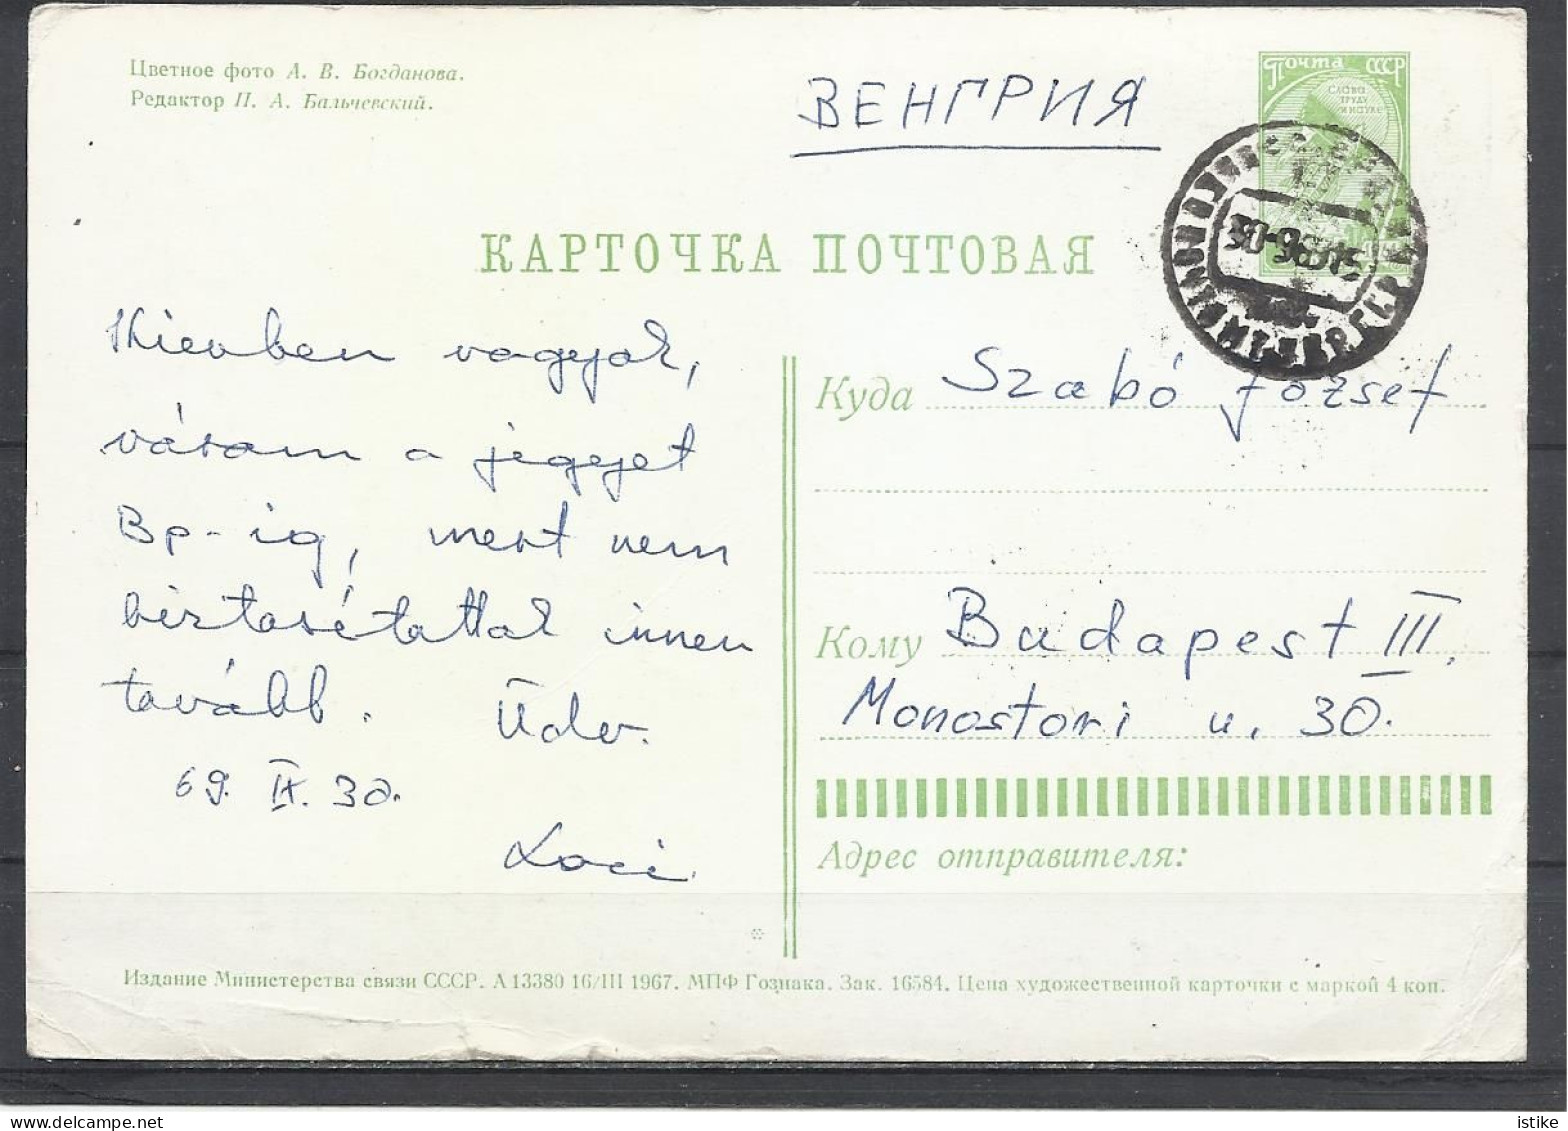 Цветное фото А. В. Богданова.
Редактор П. А. Бальчевский.
ВЕНГРИЯ
Почта СССР
СЛАВА
ТРУДУ
И НАУКЕ
КАРТОЧКА ПОЧТОВАЯ
Kievben vagyok,
várom a jegyet
Bp-ig, mert nem
biztosítottak innen
tovább. Üdv.
69. IX. 30.
Laci
Куда Szabó József
Кому Budapest III.
Monostori u. 30.
Адрес отправителя:
Издание Министерства связи СССР. А 13380 16/III 1967. МПФ Гознака. Зак. 16584. Цена художественной карточки с маркой 4 коп.
istike